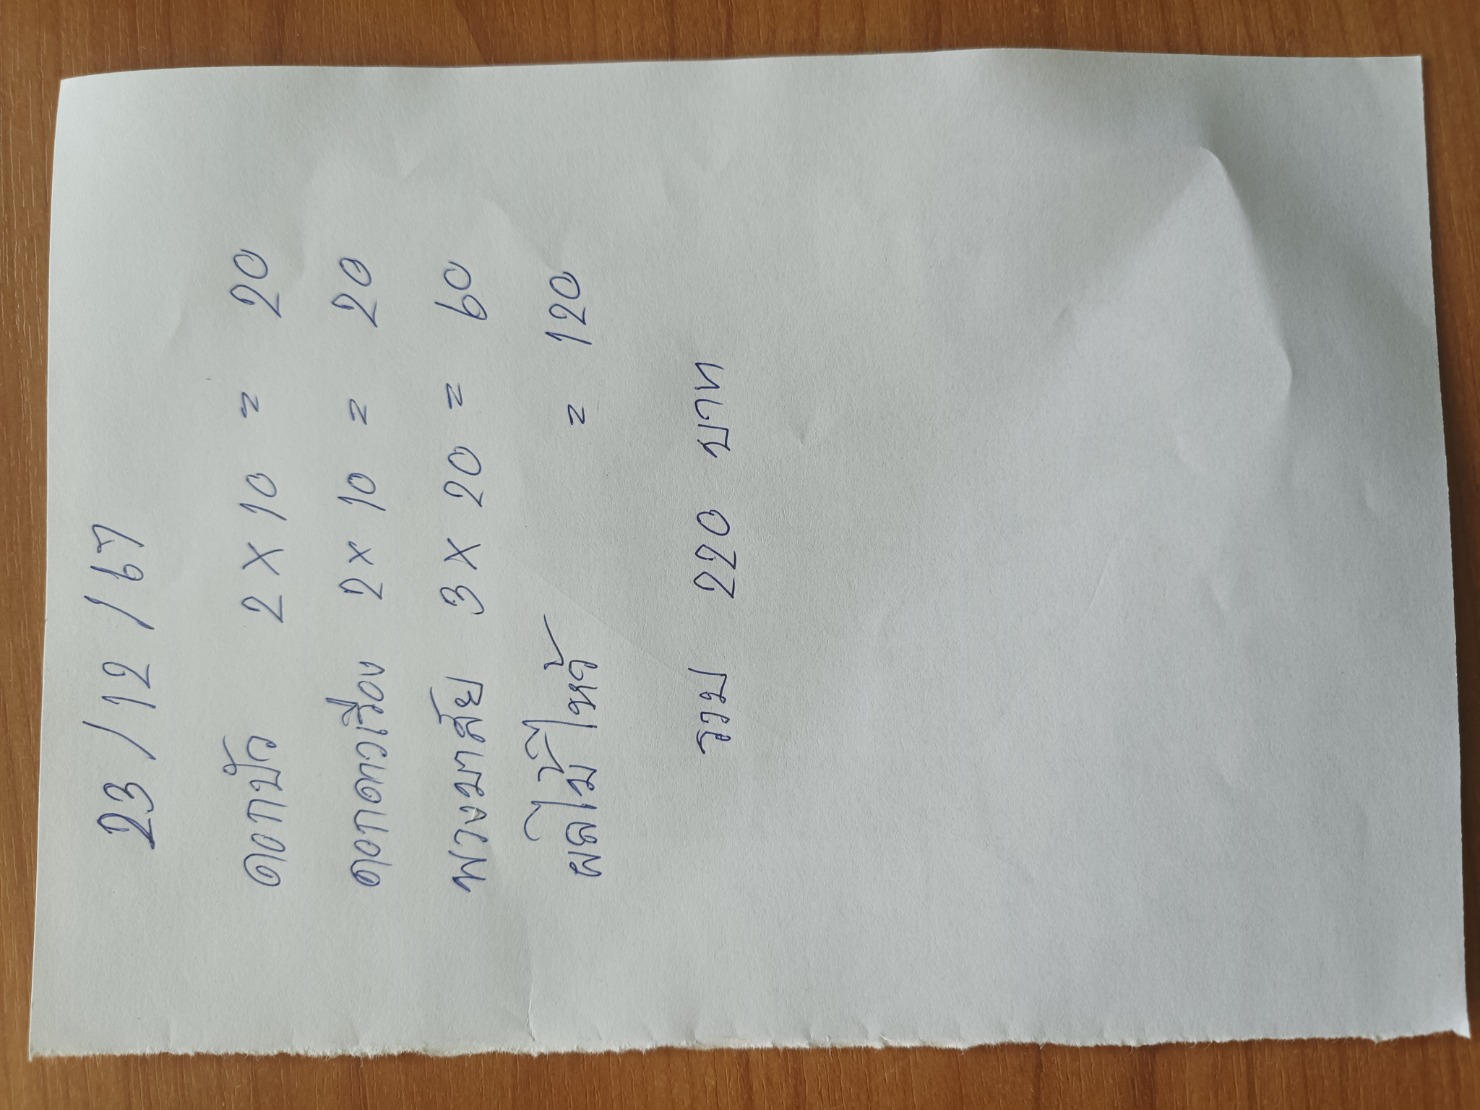 23/12/67
ดอกบัว 2 X 10 = 20
ดอกดาวเรือง 2 x 10 = 20
พวงมาลัย 3 X 20 = 60
ผลไม้ไหว้ = 120
รวม 220 บาท